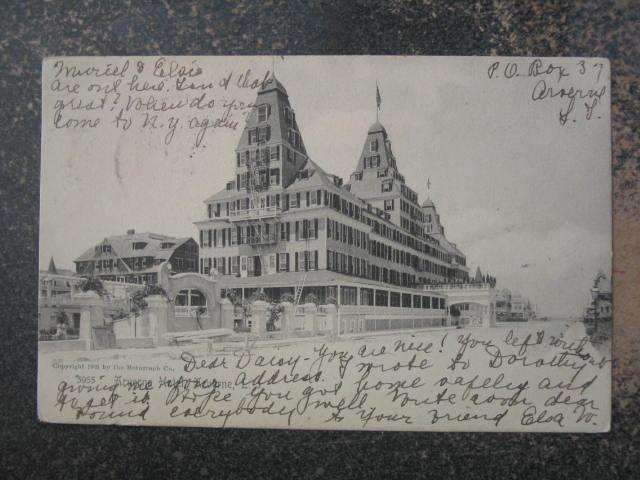 Muriel & Elsie
are one here. Isn't that
great? When do you
come to N.Y. again?
P.O Box 37
Arverne
L. I.
Copyright 190 by the Rotograph Co.
3955 Arverne Hotel, Arverne,
Dear Daisy - You are nice! you left without
giving me your Address. I wrote to Dorothy
to get it. Hope you got home safely and
found everybody well. Write soon dear
to your friend Elsa W.